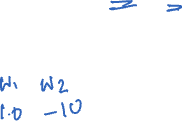 W1 W2
1.0 -10